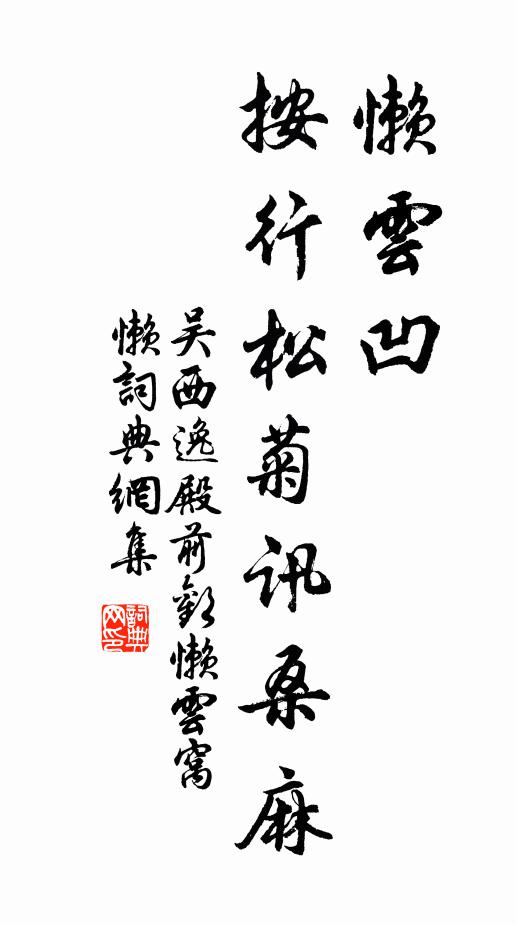 懶雲凹
按行松菊訊桑麻
吳西逸殿前歡懶雲窩
懶詞典網集
詞典网印